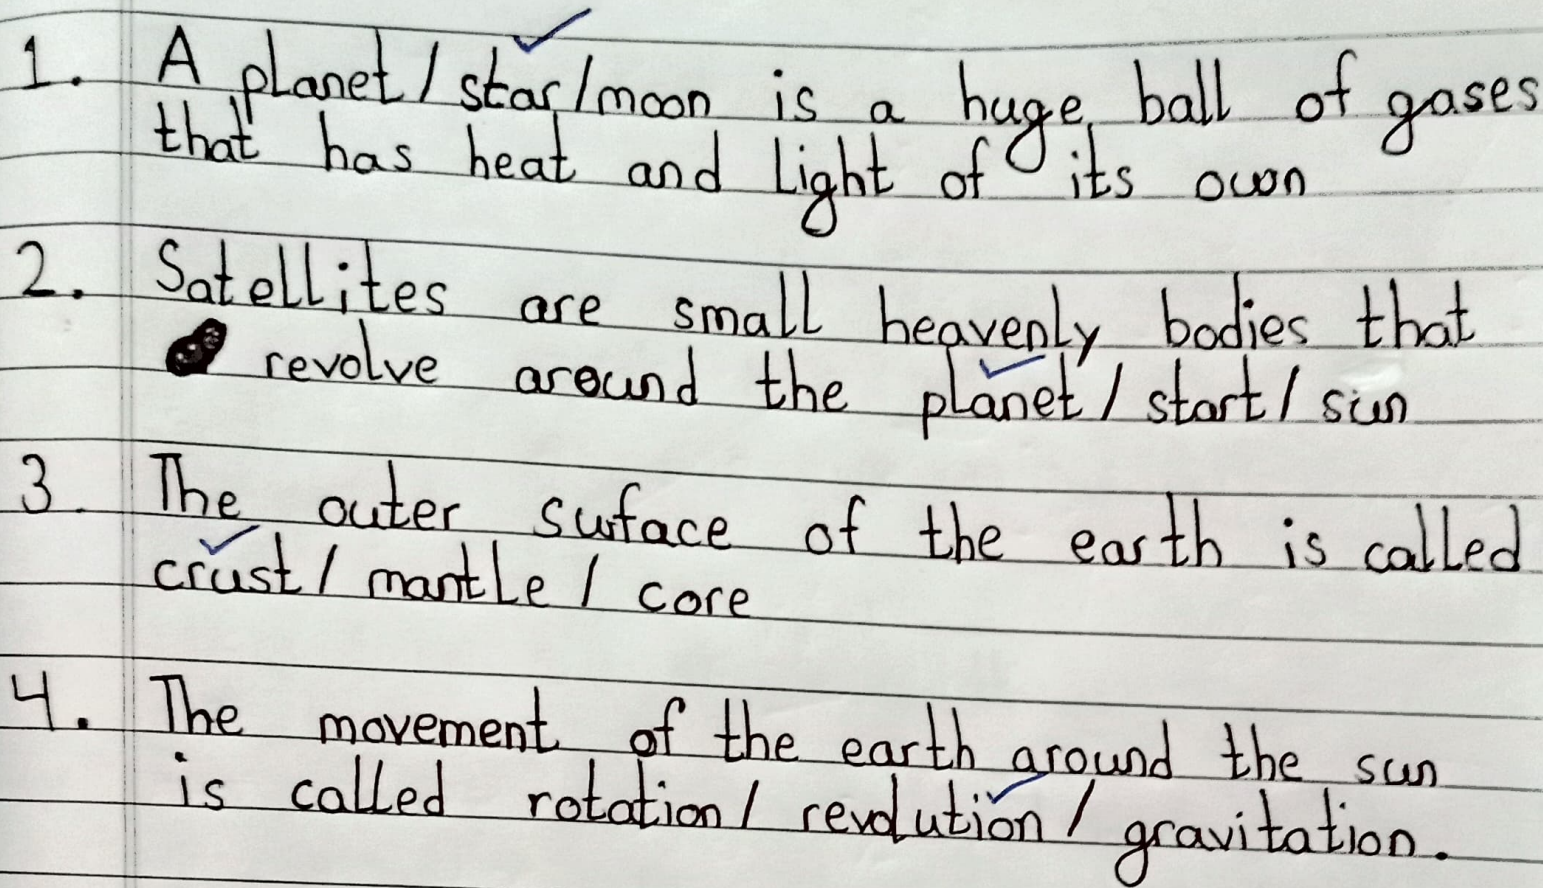 1. A planet / star / moon is a huge ball of gases
that has heat and light of its own
2. Satellites are small heavenly bodies that
revolve around the planet / start / sun
3. The outer surface of the earth is called
crust / mantle / core
4. The movement of the earth around the sun
is called rotation / revolution / gravitation.